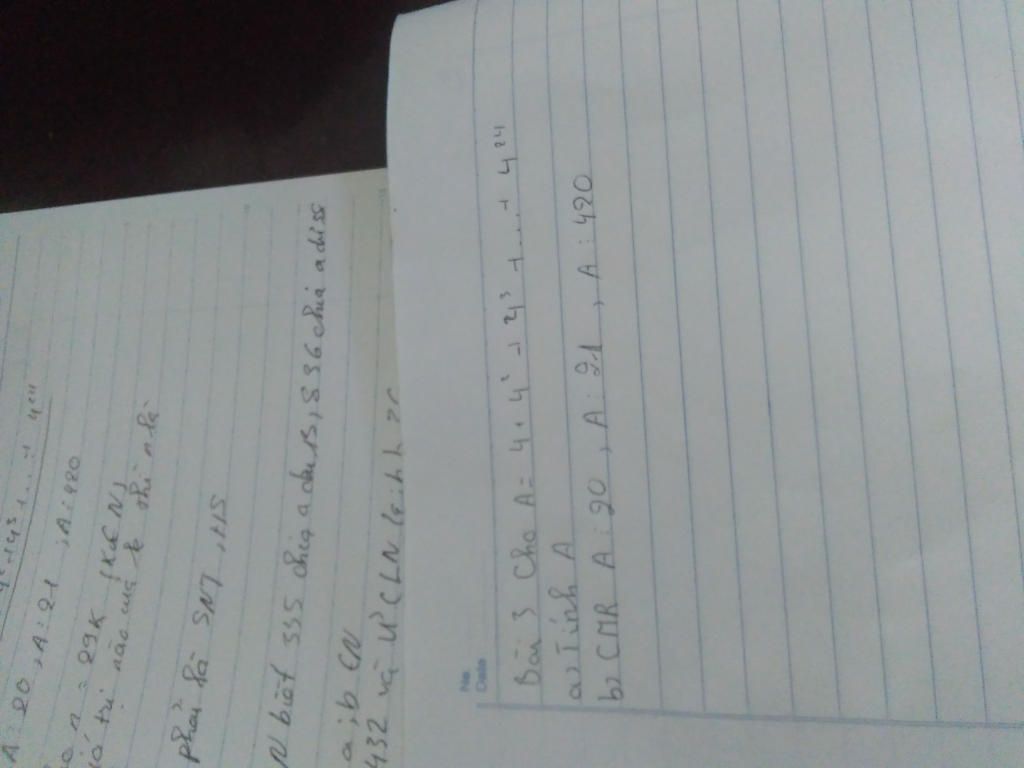 No.
Date
Bài 3 Cho A = 4 + 4² + 4³ + .... + 4²⁴
a) Tính A
b) CMR A : 20 , A : 21 , A : 420
A : 20 , A : 21 , A : 420
n = 29k (k ∈ N)
phải là SNT, HS
N biết 355 chia a dư 13, 836 chia a dư 8
a, b
432 và ƯCLN